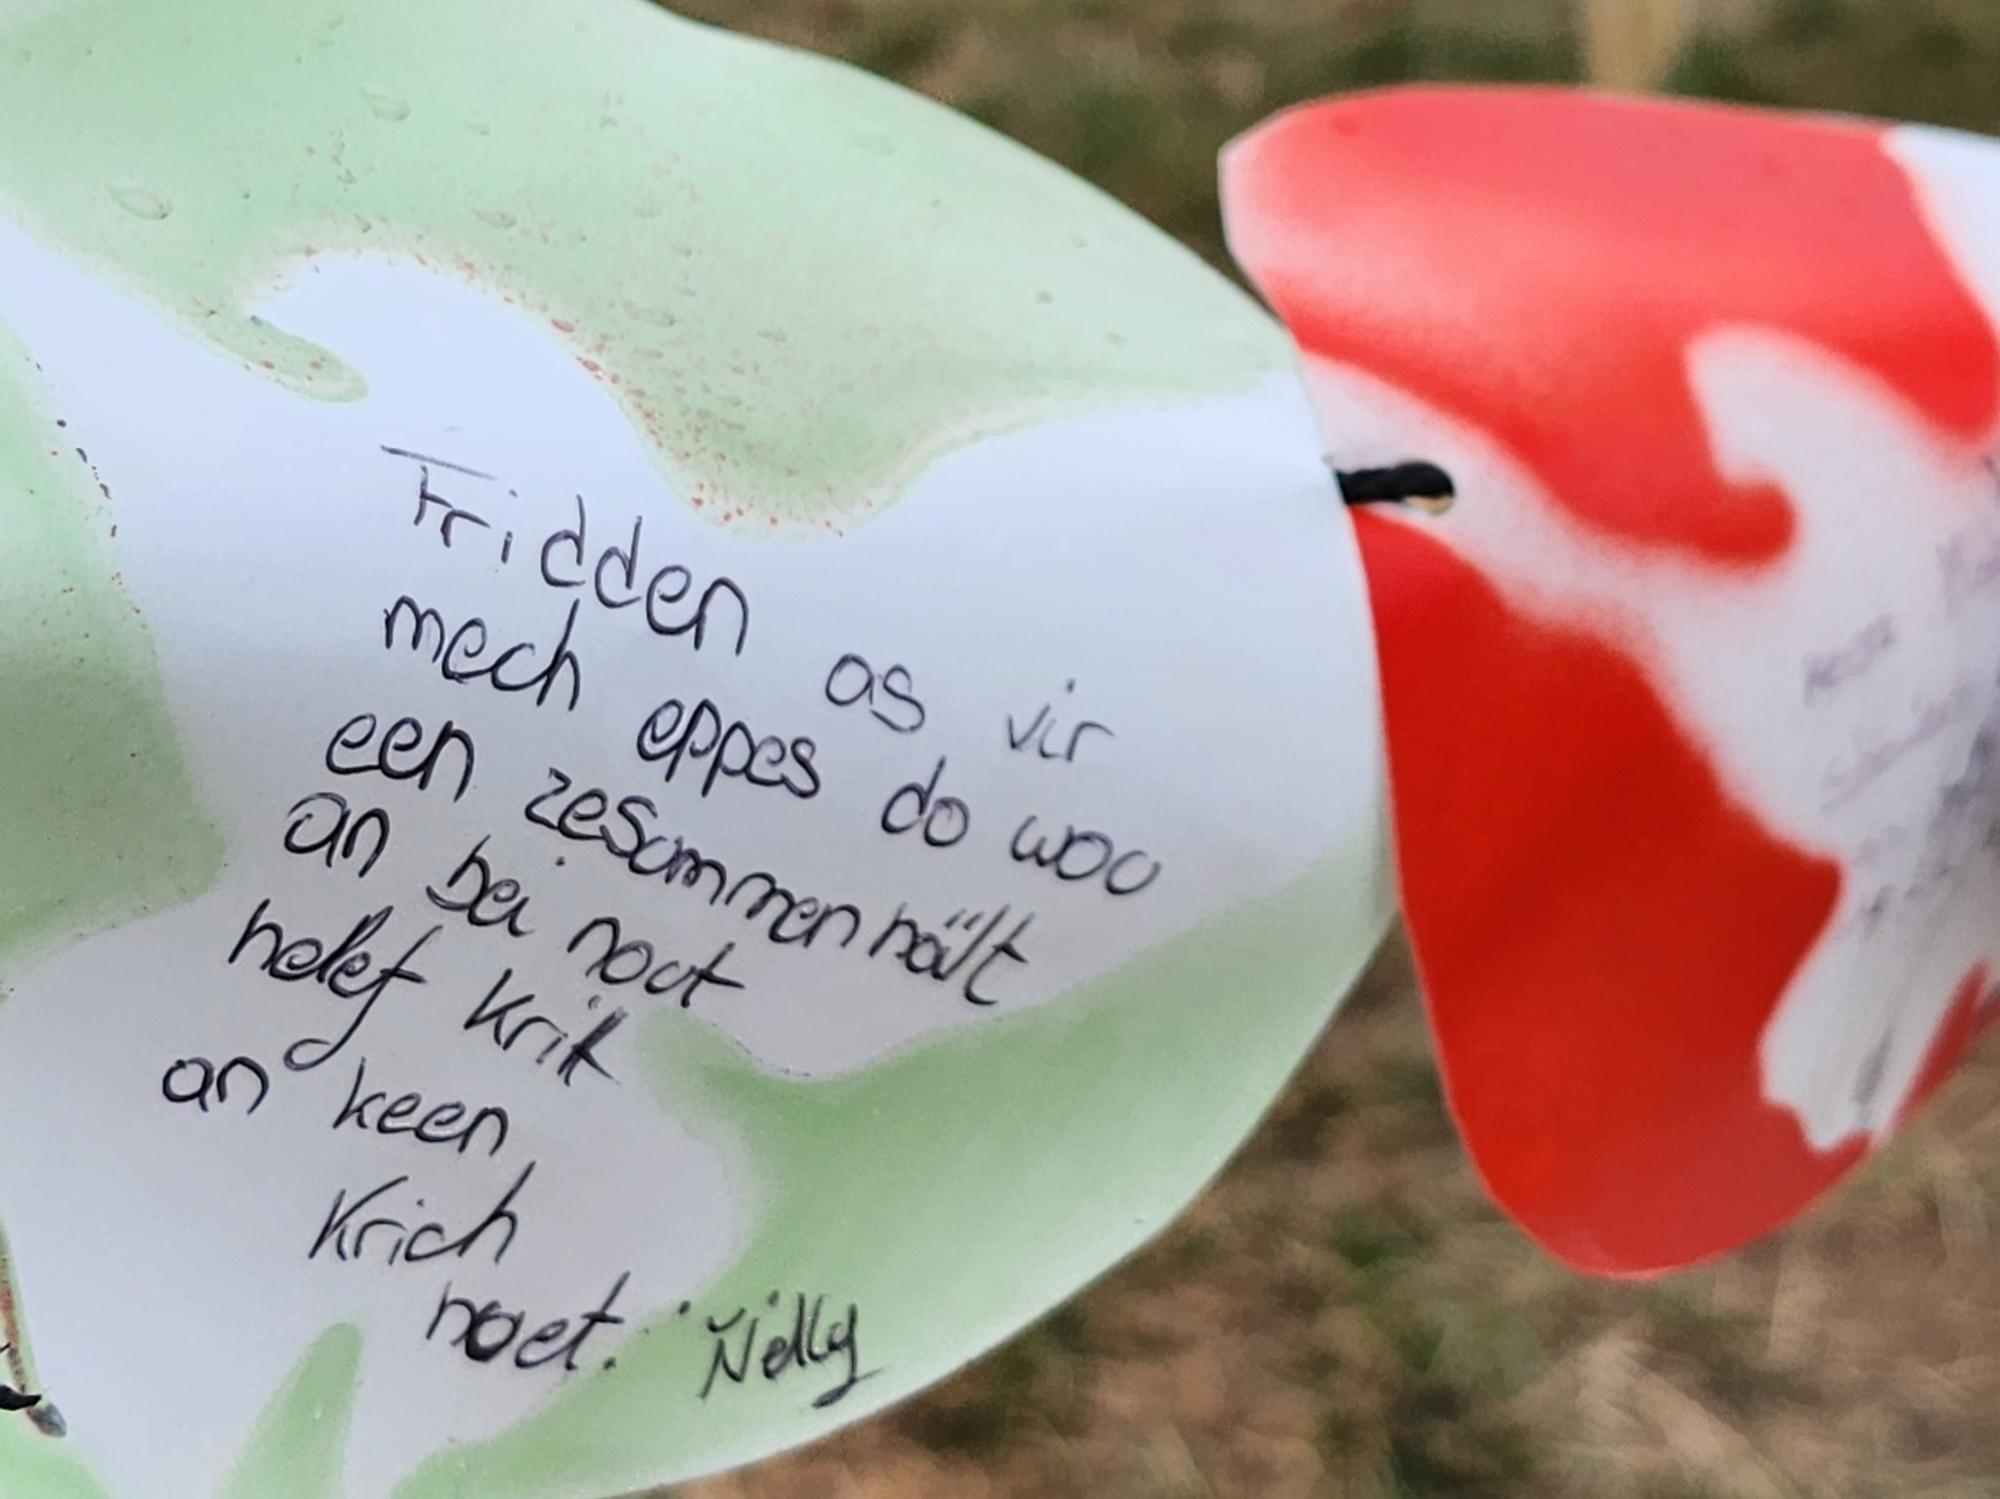 Fridden as vir
mech eppes do woo
een zesammenhält
an bei noot
helef Krik
an keen
Krich
hoet. Nelly